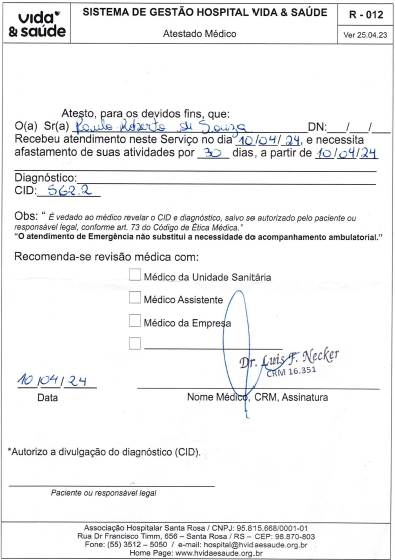 vida
& saúde
SISTEMA DE GESTÃO HOSPITAL VIDA & SAÚDE
Atestado Médico
R - 012
Ver 25.04.23
Atesto, para os devidos fins, que:
O(a) Sr(a) Paulo Roberto de Souza DN: __/__/__
Recebeu atendimento neste Serviço no dia 10/04/24, e necessita
afastamento de suas atividades por 30 dias, a partir de 10/04/24
Diagnóstico:
CID: S62.2
Obs: " É vedado ao médico revelar o CID e diagnóstico, salvo se autorizado pelo paciente ou
responsável legal, conforme art. 73 do Código de Ética Médica."
"O atendimento de Emergência não substitui a necessidade do acompanhamento ambulatorial."
Recomenda-se revisão médica com:
Médico da Unidade Sanitária
Médico Assistente
Médico da Empresa
Dr. Luis F. Necker
CRM 16.351
10/04/24
Data
Nome Médico, CRM, Assinatura
*Autorizo a divulgação do diagnóstico (CID).
Paciente ou responsável legal
Associação Hospitalar Santa Rosa / CNPJ: 95.815.668/0001-01
Rua Dr Francisco Timm, 656 – Santa Rosa / RS – CEP: 98.870-803
Fone: (55) 3512 – 5050 / e-mail: hospital@hvidaesaude.org.br
Home Page: www.hvidaesaude.org.br